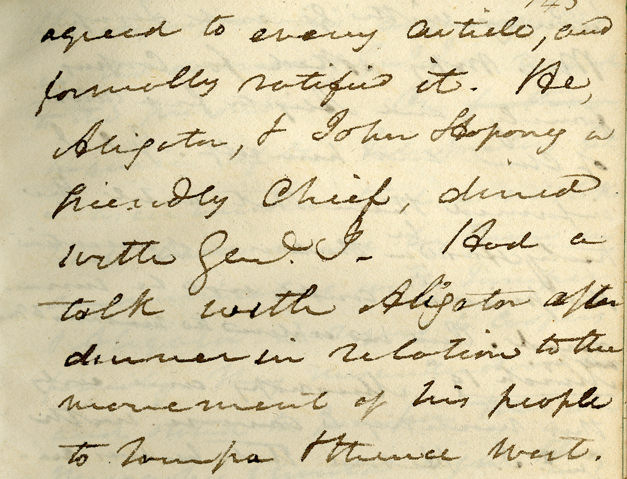 143
agreed to every article, and
formally ratified it. He,
Aligator, & John Hopony a
friendly Chief, dined
with Genl. J. Had a
talk with Aligator after
dinner in relation to the
movement of his people
to Tampa & thence West.